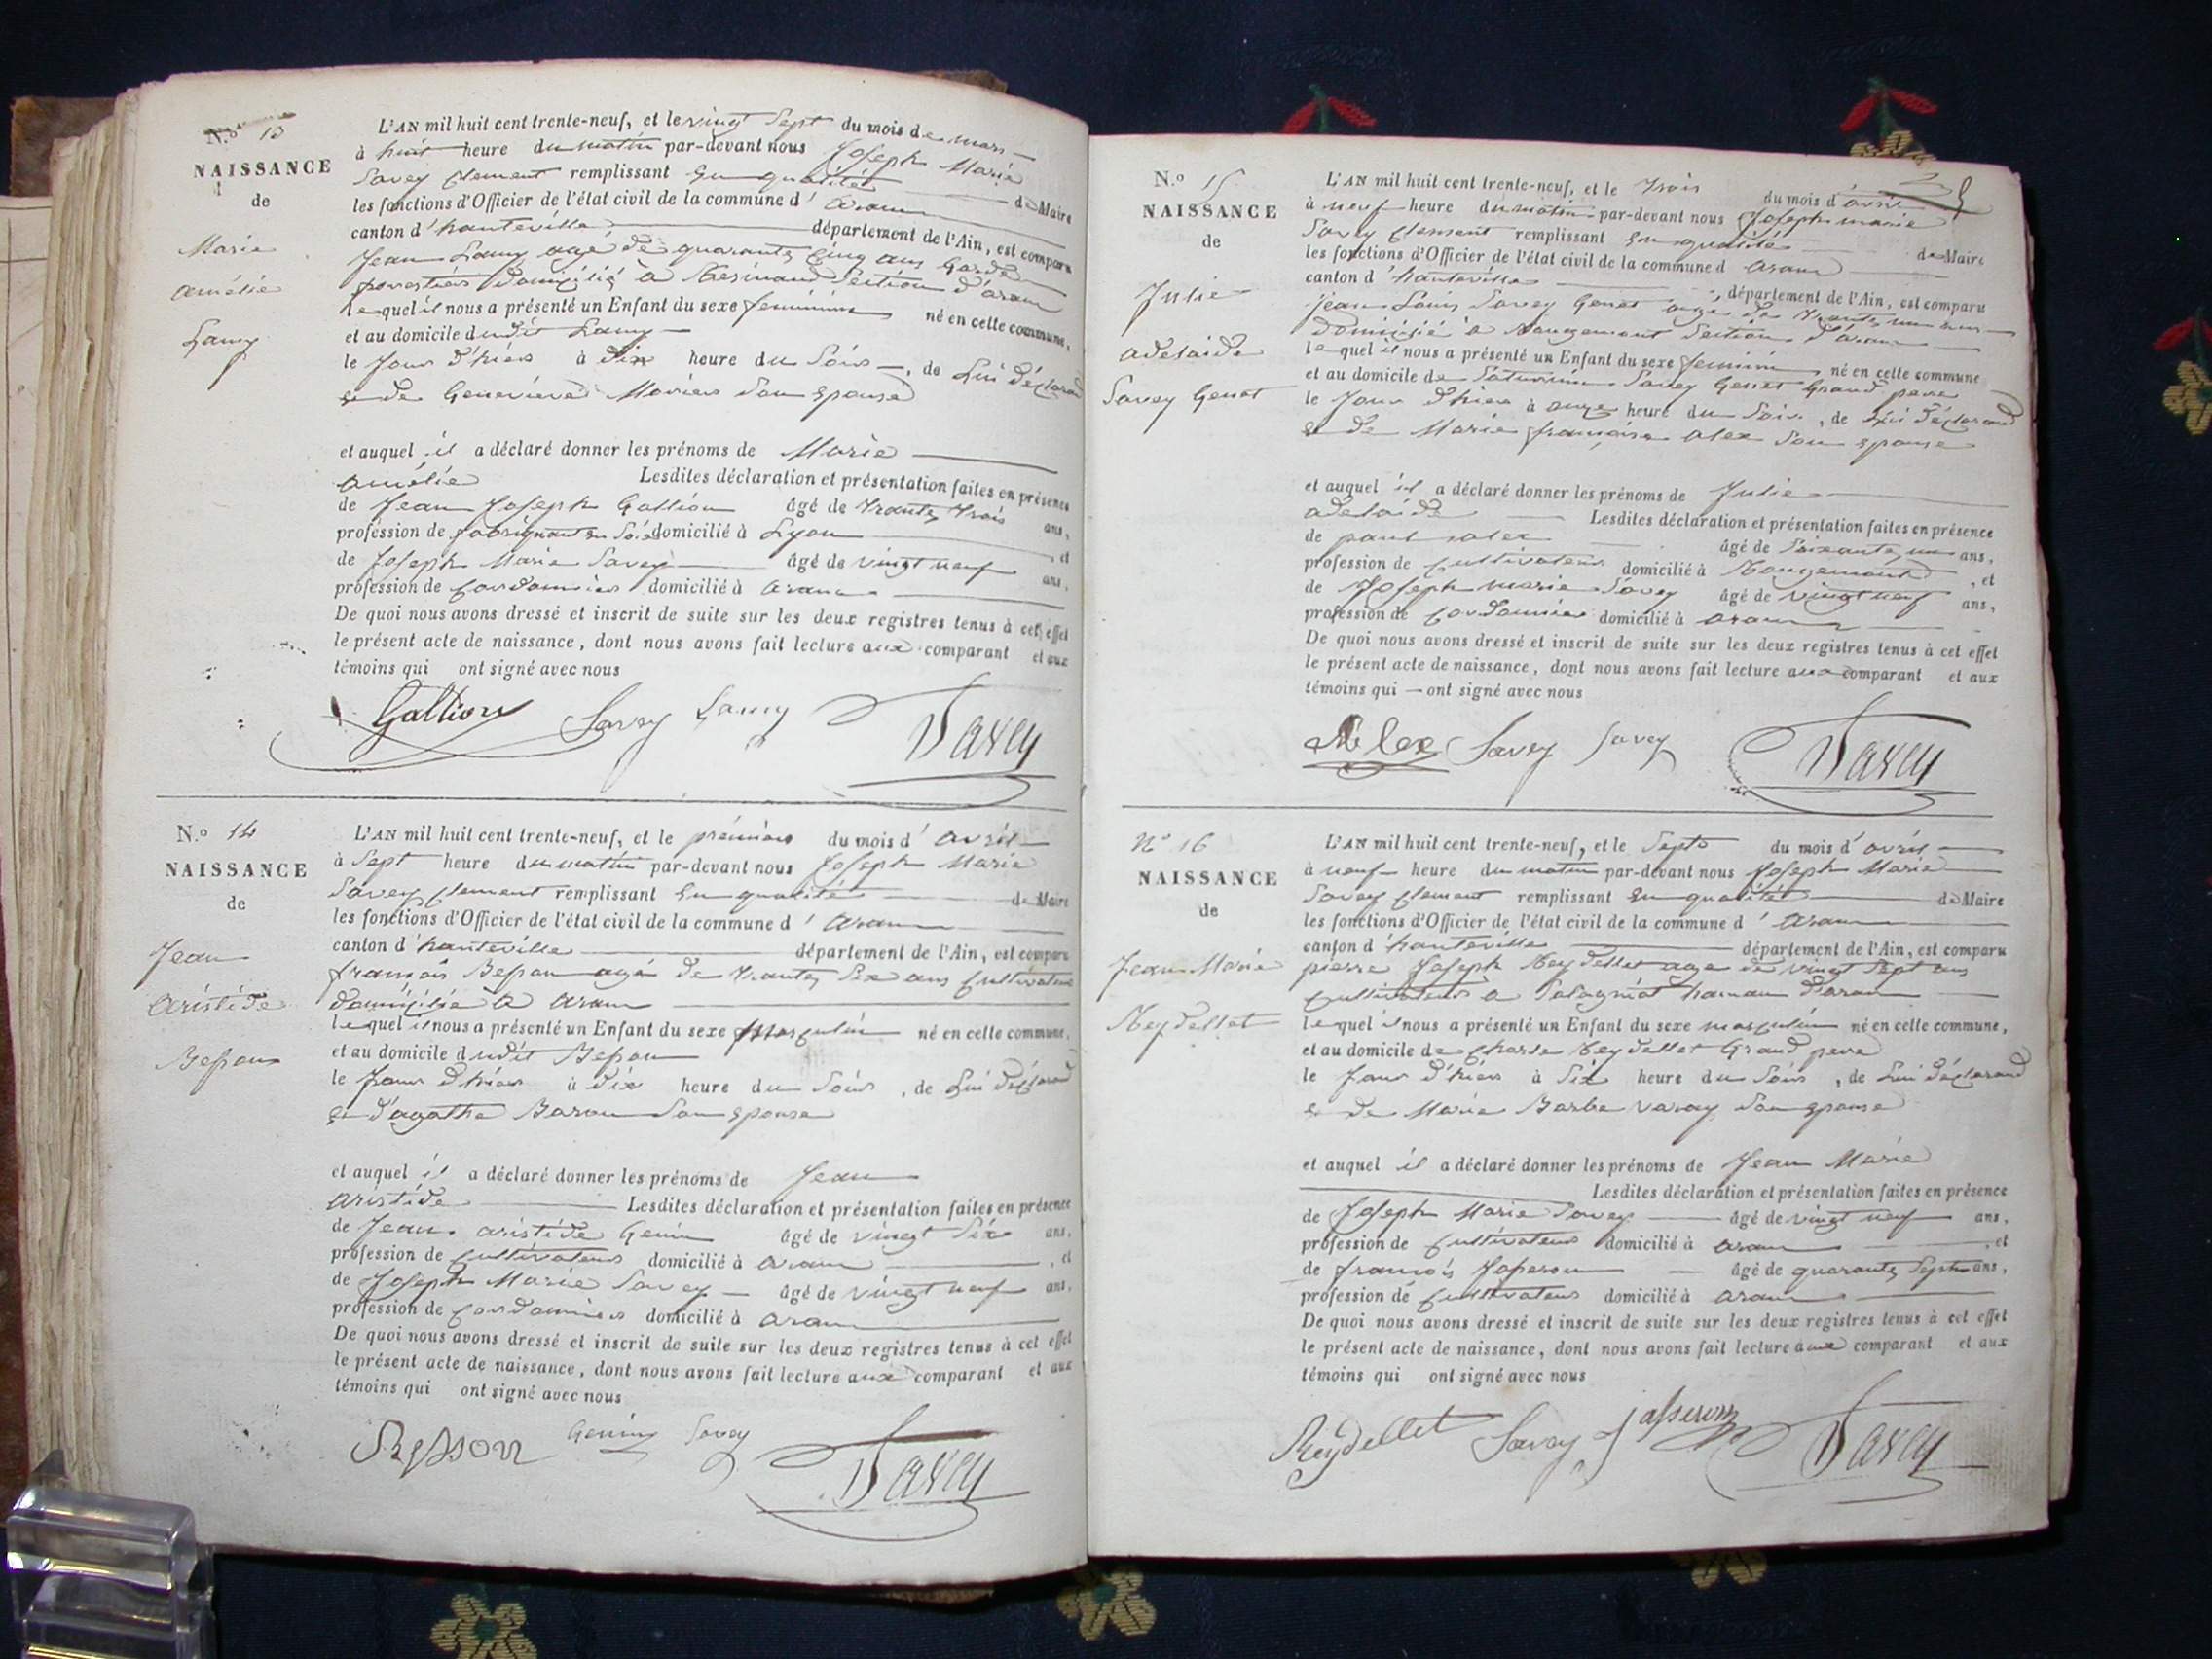 N.º 13
NAISSANCE
de
Marie
Amélie
Lamy
L'AN mil huit cent trente-neuf, et le vingt Sept du mois de mars
à huit heure du matin par-devant nous Joseph Marie
Savey Clement remplissant En qualité de Maire
les fonctions d'Officier de l'état civil de la commune d' aranc
canton d' hauteville département de l'Ain, est comparu
Jean Lamy agé de quarante Cinq ans Garde
forestier domicilié à Resinand Section d'aranc
lequel il nous a présenté un Enfant du sexe feminim né en cette commune,
et au domicile dudit Lamy
le Jour d'hier à dix heure du Soir, de Lui déclarand
et de Geneviève Morier Son Epouse
et auquel il a déclaré donner les prénoms de Marie
Amélie Lesdites déclaration et présentation faites en présence
de Jean Joseph Gallion âgé de Trante Trois ans,
profession de fabriquant en Soie domicilié à Lyon, et
de Joseph Marie Savey âgé de vingt neuf ans,
profession de Cordonnier domicilié à aranc
De quoi nous avons dressé et inscrit de suite sur les deux registres tenus à cet effet
le présent acte de naissance, dont nous avons fait lecture aux comparant et aux
témoins qui ont signé avec nous
Gallion Savey Lamy Savey
N.º 14
NAISSANCE
de
Jean
Aristide
Besson
L'AN mil huit cent trente-neuf, et le prémier du mois d' avril
à Sept heure du matin par-devant nous Joseph Marie
Savey Clement remplissant En qualité de Maire
les fonctions d'Officier de l'état civil de la commune d' aranc
canton d' hauteville département de l'Ain, est comparu
françois Besson agé de Trante Six ans Cultivateur
domicilié à aranc
lequel il nous a présenté un Enfant du sexe Masculin né en cette commune,
et au domicile dudit Besson
le Jour d'hier à dix heure du Soir, de Lui déclarand
et d'agathe Baron Son Epouse
et auquel il a déclaré donner les prénoms de Jean
Aristide Lesdites déclaration et présentation faites en présence
de Jean aristide Genin âgé de vingt Six ans,
profession de Cultivateur domicilié à aranc, et
de Joseph Marie Savey âgé de vingt neuf ans,
profession de Cordonnier domicilié à aranc
De quoi nous avons dressé et inscrit de suite sur les deux registres tenus à cet effet
le présent acte de naissance, dont nous avons fait lecture aux comparant et aux
témoins qui ont signé avec nous
Besson Genin Savey Savey
N.º 15
NAISSANCE
de
Julie
adelaide
Savey Genet
L'AN mil huit cent trente-neuf, et le Trois du mois d'avril
à neuf heure du matin par-devant nous Joseph marie
Savey Clement remplissant En qualité de Maire
les fonctions d'Officier de l'état civil de la commune d aranc
canton d' hauteville, département de l'Ain, est comparu
Jean Louis Savey Genet agé de Trante un ans
domicilié à Rougemont Section d'aranc
lequel il nous a présenté un Enfant du sexe feminin né en cette commune
et au domicile de Saturnin Savey Genet Grand pere
le Jour d'hier à onze heure du Soir, de Lui déclarand
et de Marie françoise alex Son Epouse
et auquel il a déclaré donner les prénoms de Julie
adelaide Lesdites déclaration et présentation faites en présence
de paul alex âgé de Soixante, un ans,
profession de Cultivateur domicilié à Rougemont, et
de Joseph marie Savey âgé de vingt neuf ans,
profession de Cordonnier domicilié à aranc
De quoi nous avons dressé et inscrit de suite sur les deux registres tenus à cet effet
le présent acte de naissance, dont nous avons fait lecture aux comparant et aux
témoins qui ont signé avec nous
Alex Savey Savey Savey
Nº 16
NAISSANCE
de
Jean Marie
Reydellet
L'AN mil huit cent trente-neuf, et le Sept du mois d' avril
à neuf heure du matin par-devant nous Joseph Marie
Savey Clement remplissant En qualité de Maire
les fonctions d'Officier de l'état civil de la commune d' aranc
canton d' hauteville département de l'Ain, est comparu
pierre Joseph Reydellet agé de vingt Sept ans
Cultivateur a Pelagniat hamau d'aranc
lequel il nous a présenté un Enfant du sexe masculin né en cette commune,
et au domicile de Charle Reydellet Grand pere
le Jour d'hier à Six heure du Soir, de Lui déclarand
et de Marie Barbe varay Son Epouse
et auquel il a déclaré donner les prénoms de Jean Marie
Lesdites déclaration et présentation faites en présence
de Joseph Marie Savey âgé de vingt neuf ans,
profession de Cultivateur domicilié à aranc, et
de françois Jasseron âgé de quarante Sept ans,
profession de Cultivateur domicilié à aranc
De quoi nous avons dressé et inscrit de suite sur les deux registres tenus à cet effet
le présent acte de naissance, dont nous avons fait lecture aux comparant et aux
témoins qui ont signé avec nous
Reydellet Savey Jasseron Savey